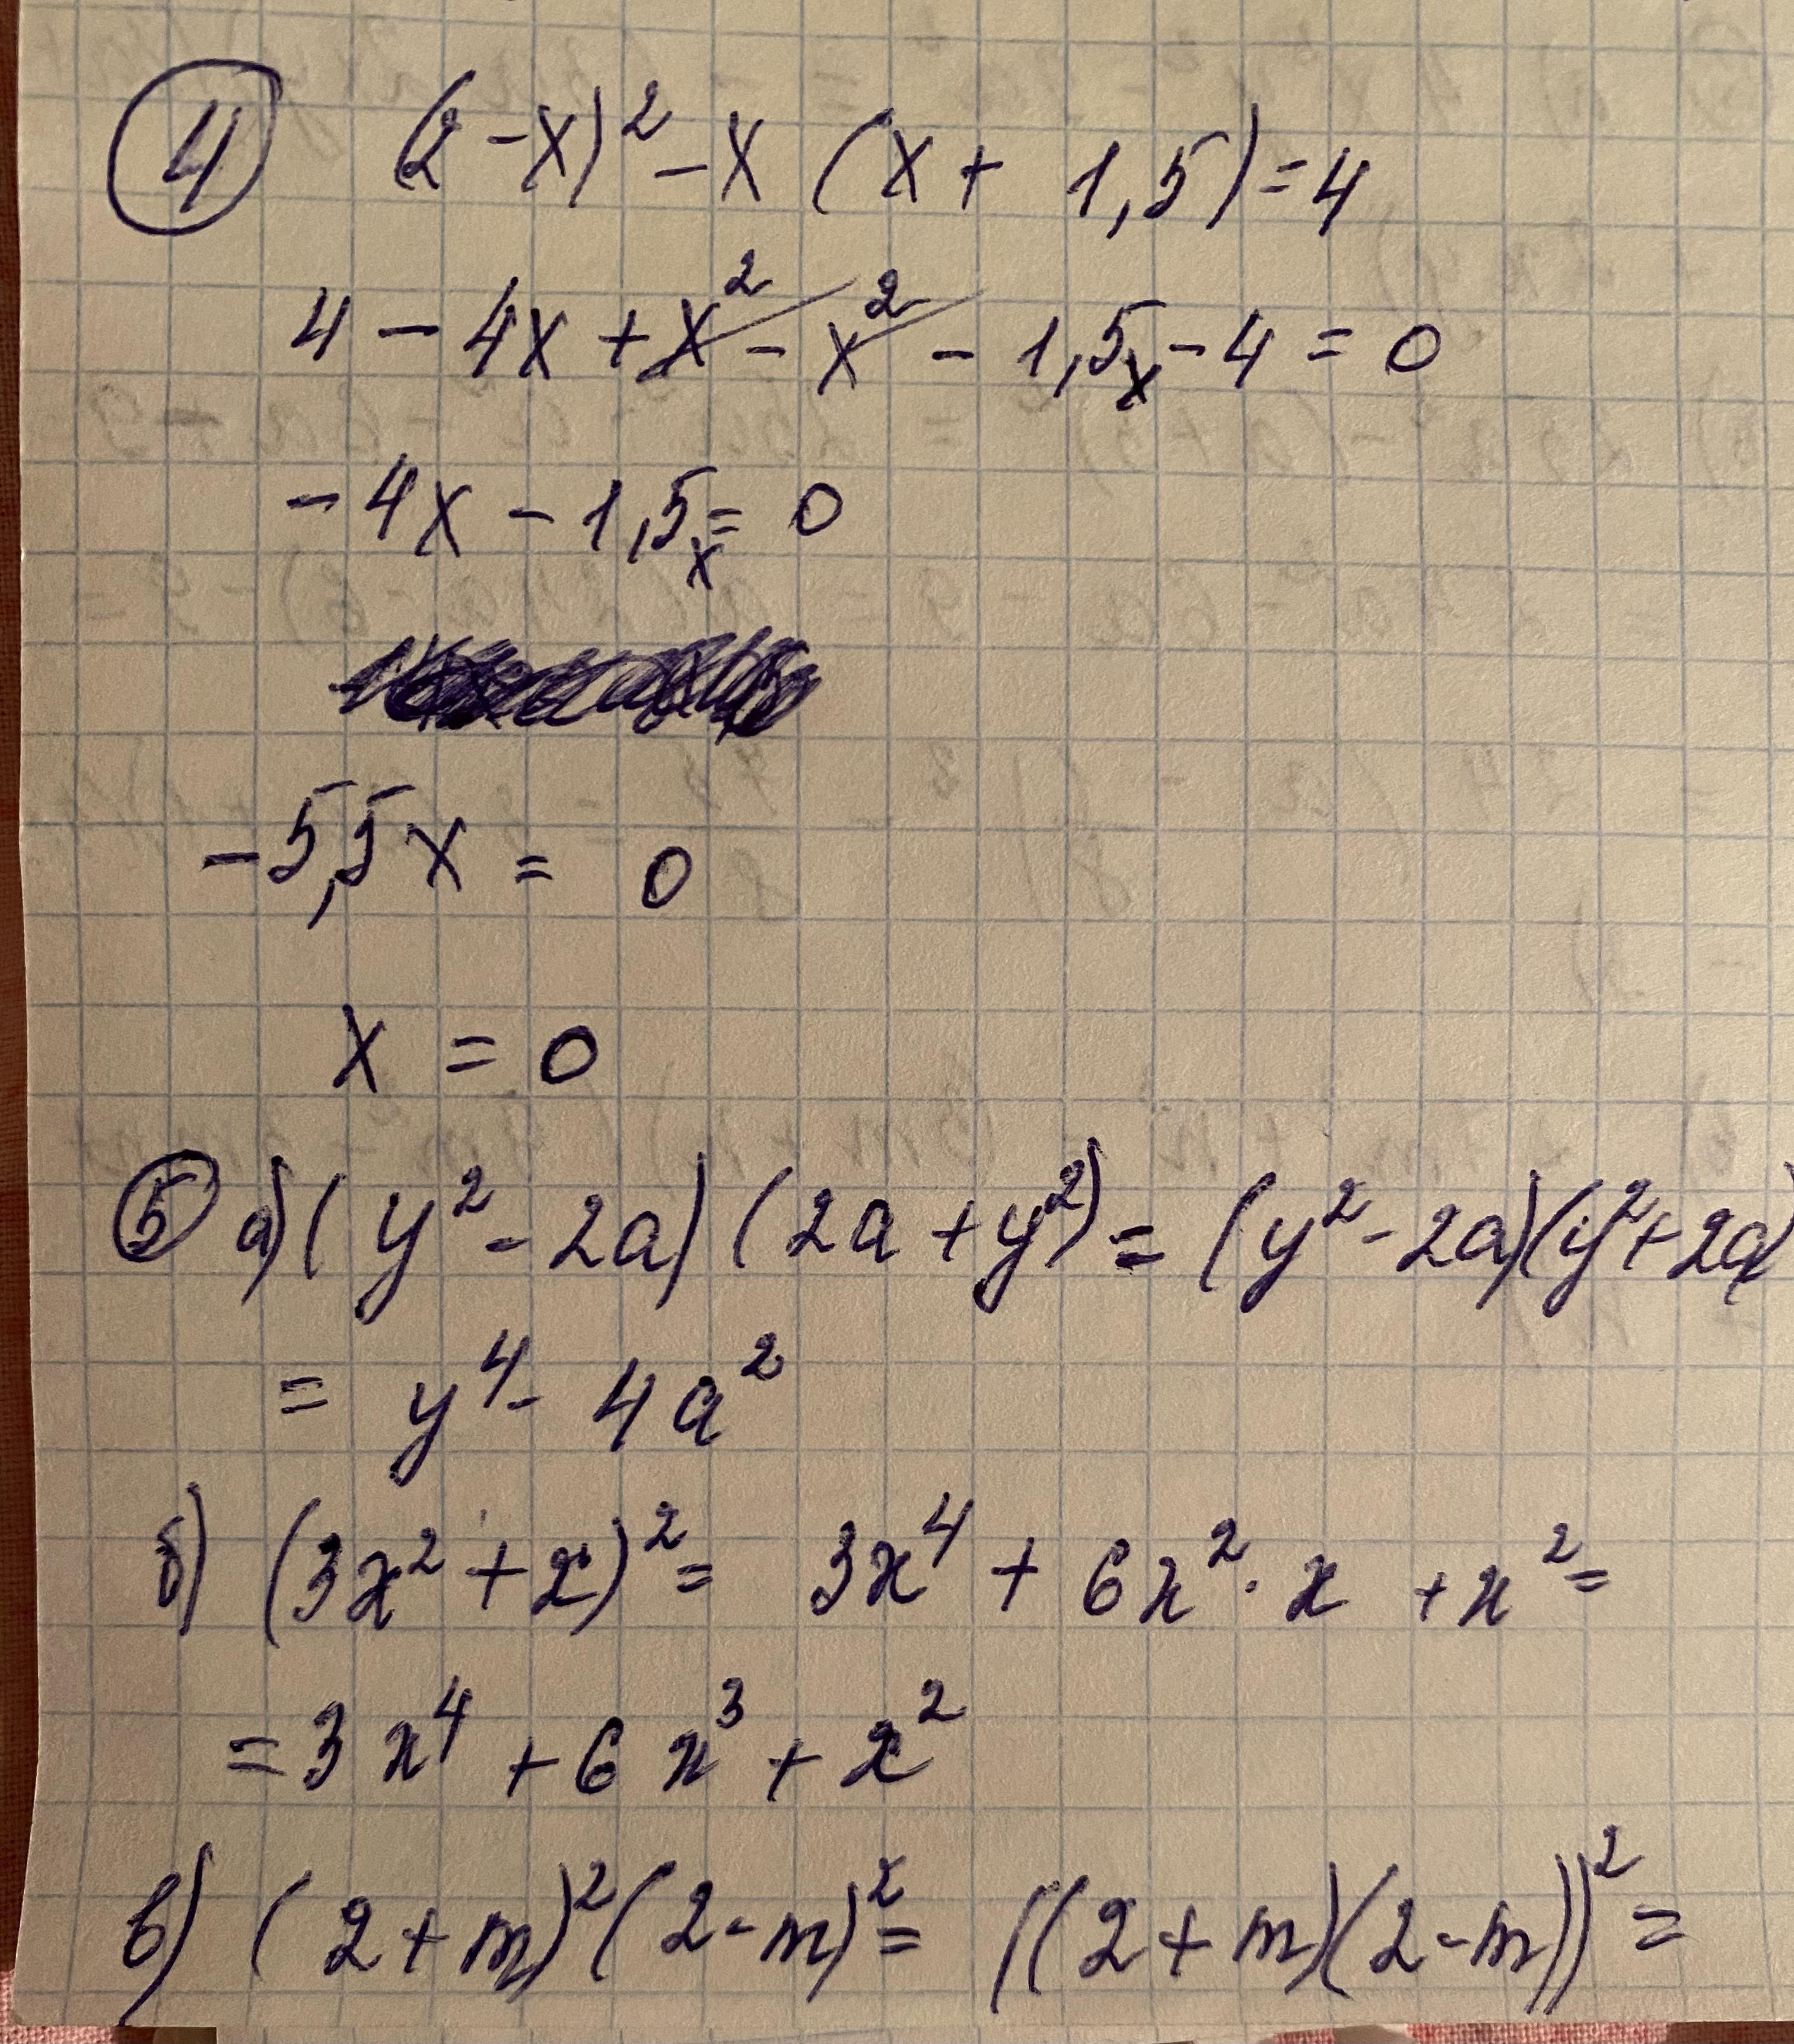 ④ (2-x)² - x (x + 1,5) = 4
4 - 4x + x² - x² - 1,5x - 4 = 0
- 4x - 1,5x = 0
- 5,5x = 0
x = 0
⑤ а) (y² - 2a) (2a + y²) = (y² - 2a)(y² + 2a)
= y⁴ - 4a²
б) (3x² + x)² = 3x⁴ + 6x² · x + x² =
= 3x⁴ + 6x³ + x²
в) (2 + m)² (2 - m)² = ((2 + m)(2 - m))² =